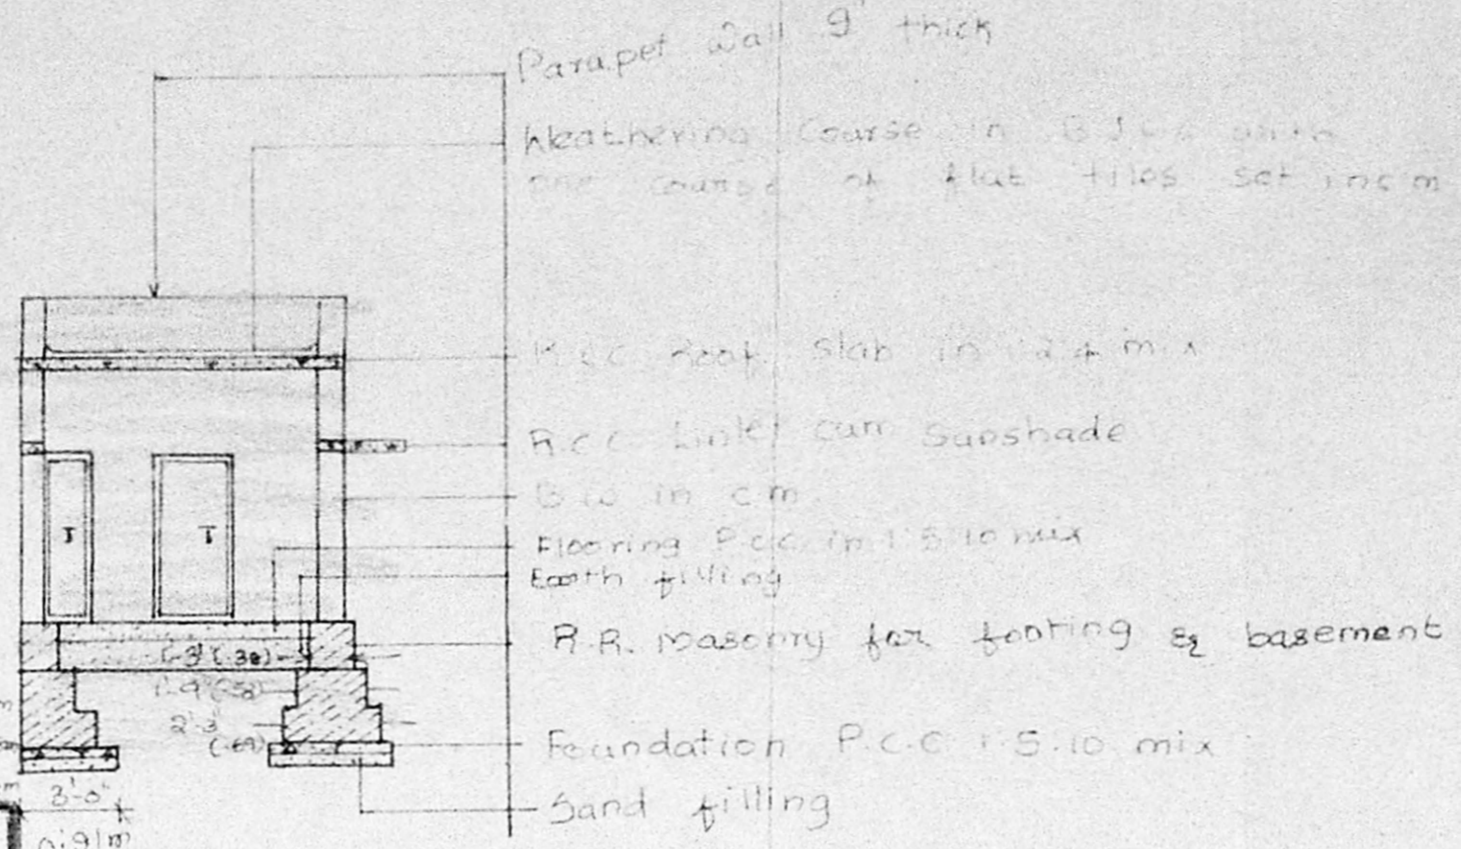 Parapet wall 9" thick
Weathering Course in B J L C with
one course of flat tiles set in c m
R.C.C Roof slab in 1:2:4 mix
R.C.C Lintel cum Sunshade
B W in c m
Flooring P.C.C. in 1:5:10 mix
Earth filling
R.R. Masonry for footing & basement
Foundation P.C.C 1:5:10 mix
Sand filling
T T
1'-3" (.38)
1'-9"
2'-3"
(.69)
3'-0"
0.91m